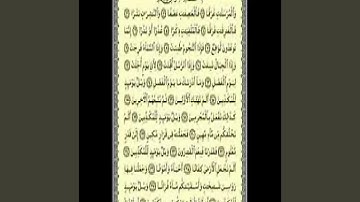 وَٱلْمُرْسَلَٰتِ عُرْفًا ١ فَٱلْعَٰصِفَٰتِ عَصْفًا ٢ وَٱلنَّٰشِرَٰتِ نَشْرًا ٣
فَٱلْفَٰرِقَٰتِ فَرْقًا ٤ فَٱلْمُلْقِيَٰتِ ذِكْرًا ٥ عُذْرًا أَوْ نُذْرًا ٦ إِنَّمَا
تُوعَدُونَ لَوَٰقِعٌ ٧ فَإِذَا ٱلنُّجُومُ طُمِسَتْ ٨ وَإِذَا ٱلسَّمَآءُ فُرِجَتْ ٩
وَإِذَا ٱلْجِبَالُ نُسِفَتْ ١٠ وَإِذَا ٱلرُّسُلُ أُقِّتَتْ ١١ لِأَىِّ يَوْمٍ أُجِّلَتْ ١٢
لِيَوْمِ ٱلْفَصْلِ ١٣ وَمَآ أَدْرَىٰكَ مَا يَوْمُ ٱلْفَصْلِ ١٤ وَيْلٌ يَوْمَئِذٍ
لِّلْمُكَذِّبِينَ ١٥ أَلَمْ نُهْلِكِ ٱلْأَوَّلِينَ ١٦ ثُمَّ نُتْبِعُهُمُ ٱلْآخِرِينَ ١٧
كَذَٰلِكَ نَفْعَلُ بِٱلْمُجْرِمِينَ ١٨ وَيْلٌ يَوْمَئِذٍ لِّلْمُكَذِّبِينَ ١٩ أَلَمْ
نَخْلُقكُّم مِّن مَّآءٍ مَّهِينٍ ٢٠ فَجَعَلْنَٰهُ فِى قَرَارٍ مَّكِينٍ ٢١ إِلَىٰ قَدَرٍ
مَّعْلُومٍ ٢٢ فَقَدَرْنَا فَنِعْمَ ٱلْقَٰدِرُونَ ٢٣ وَيْلٌ يَوْمَئِذٍ لِّلْمُكَذِّبِينَ ٢٤
أَلَمْ نَجْعَلِ ٱلْأَرْضَ كِفَاتًا ٢٥ أَحْيَآءً وَأَمْوَٰتًا ٢٦ وَجَعَلْنَا فِيهَا
رَوَٰسِىَ شَٰمِخَٰتٍ وَأَسْقَيْنَٰكُم مَّآءً فُرَاتًا ٢٧ وَيْلٌ يَوْمَئِذٍ